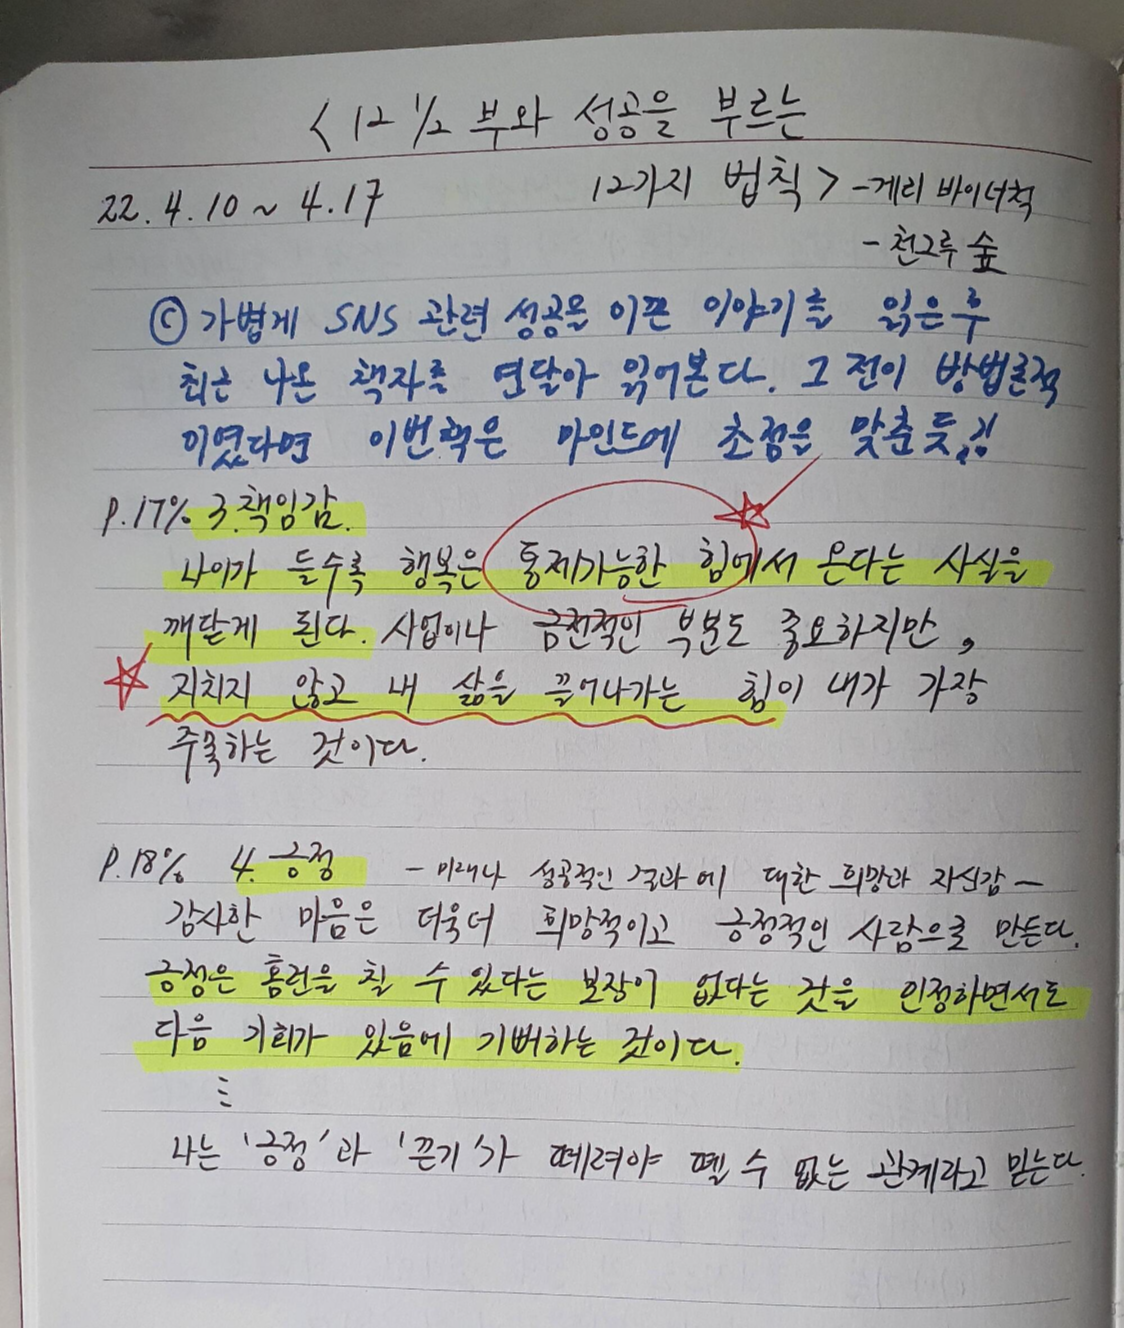 < 12 1/2 부와 성공을 부르는
22.4.10 ~ 4.17 12가지 법칙 > - 게리 바이너척
- 천그루 숲
ⓒ 가볍게 SNS 관련 성공을 이끈 이야기를 읽은 후
최근 나온 책자를 연달아 읽어본다. 그 전이 방법론적
이였다면 이번책은 마인드에 초점을 맞춘 듯,!!
P.17% 3. 책임감.
나이가 들수록 행복은 통제가능한 힘에서 온다는 사실을
깨닫게 된다. 사업이나 금전적인 부분도 중요하지만,
지치지 않고 내 삶을 끌어나가는 힘이 내가 가장
주목하는 것이다.
P.18% 4. 긍정 - 미래나 성공적인 결과에 대한 희망과 자신감 -
감사한 마음은 더욱더 희망적이고 긍정적인 사람으로 만든다.
긍정은 홈런을 칠 수 있다는 보장이 없다는 것을 인정하면서도
다음 기회가 있음에 기뻐하는 것이다.
⋮
나는 '긍정'과 '끈기'가 떼려야 뗄 수 없는 관계라고 믿는다.